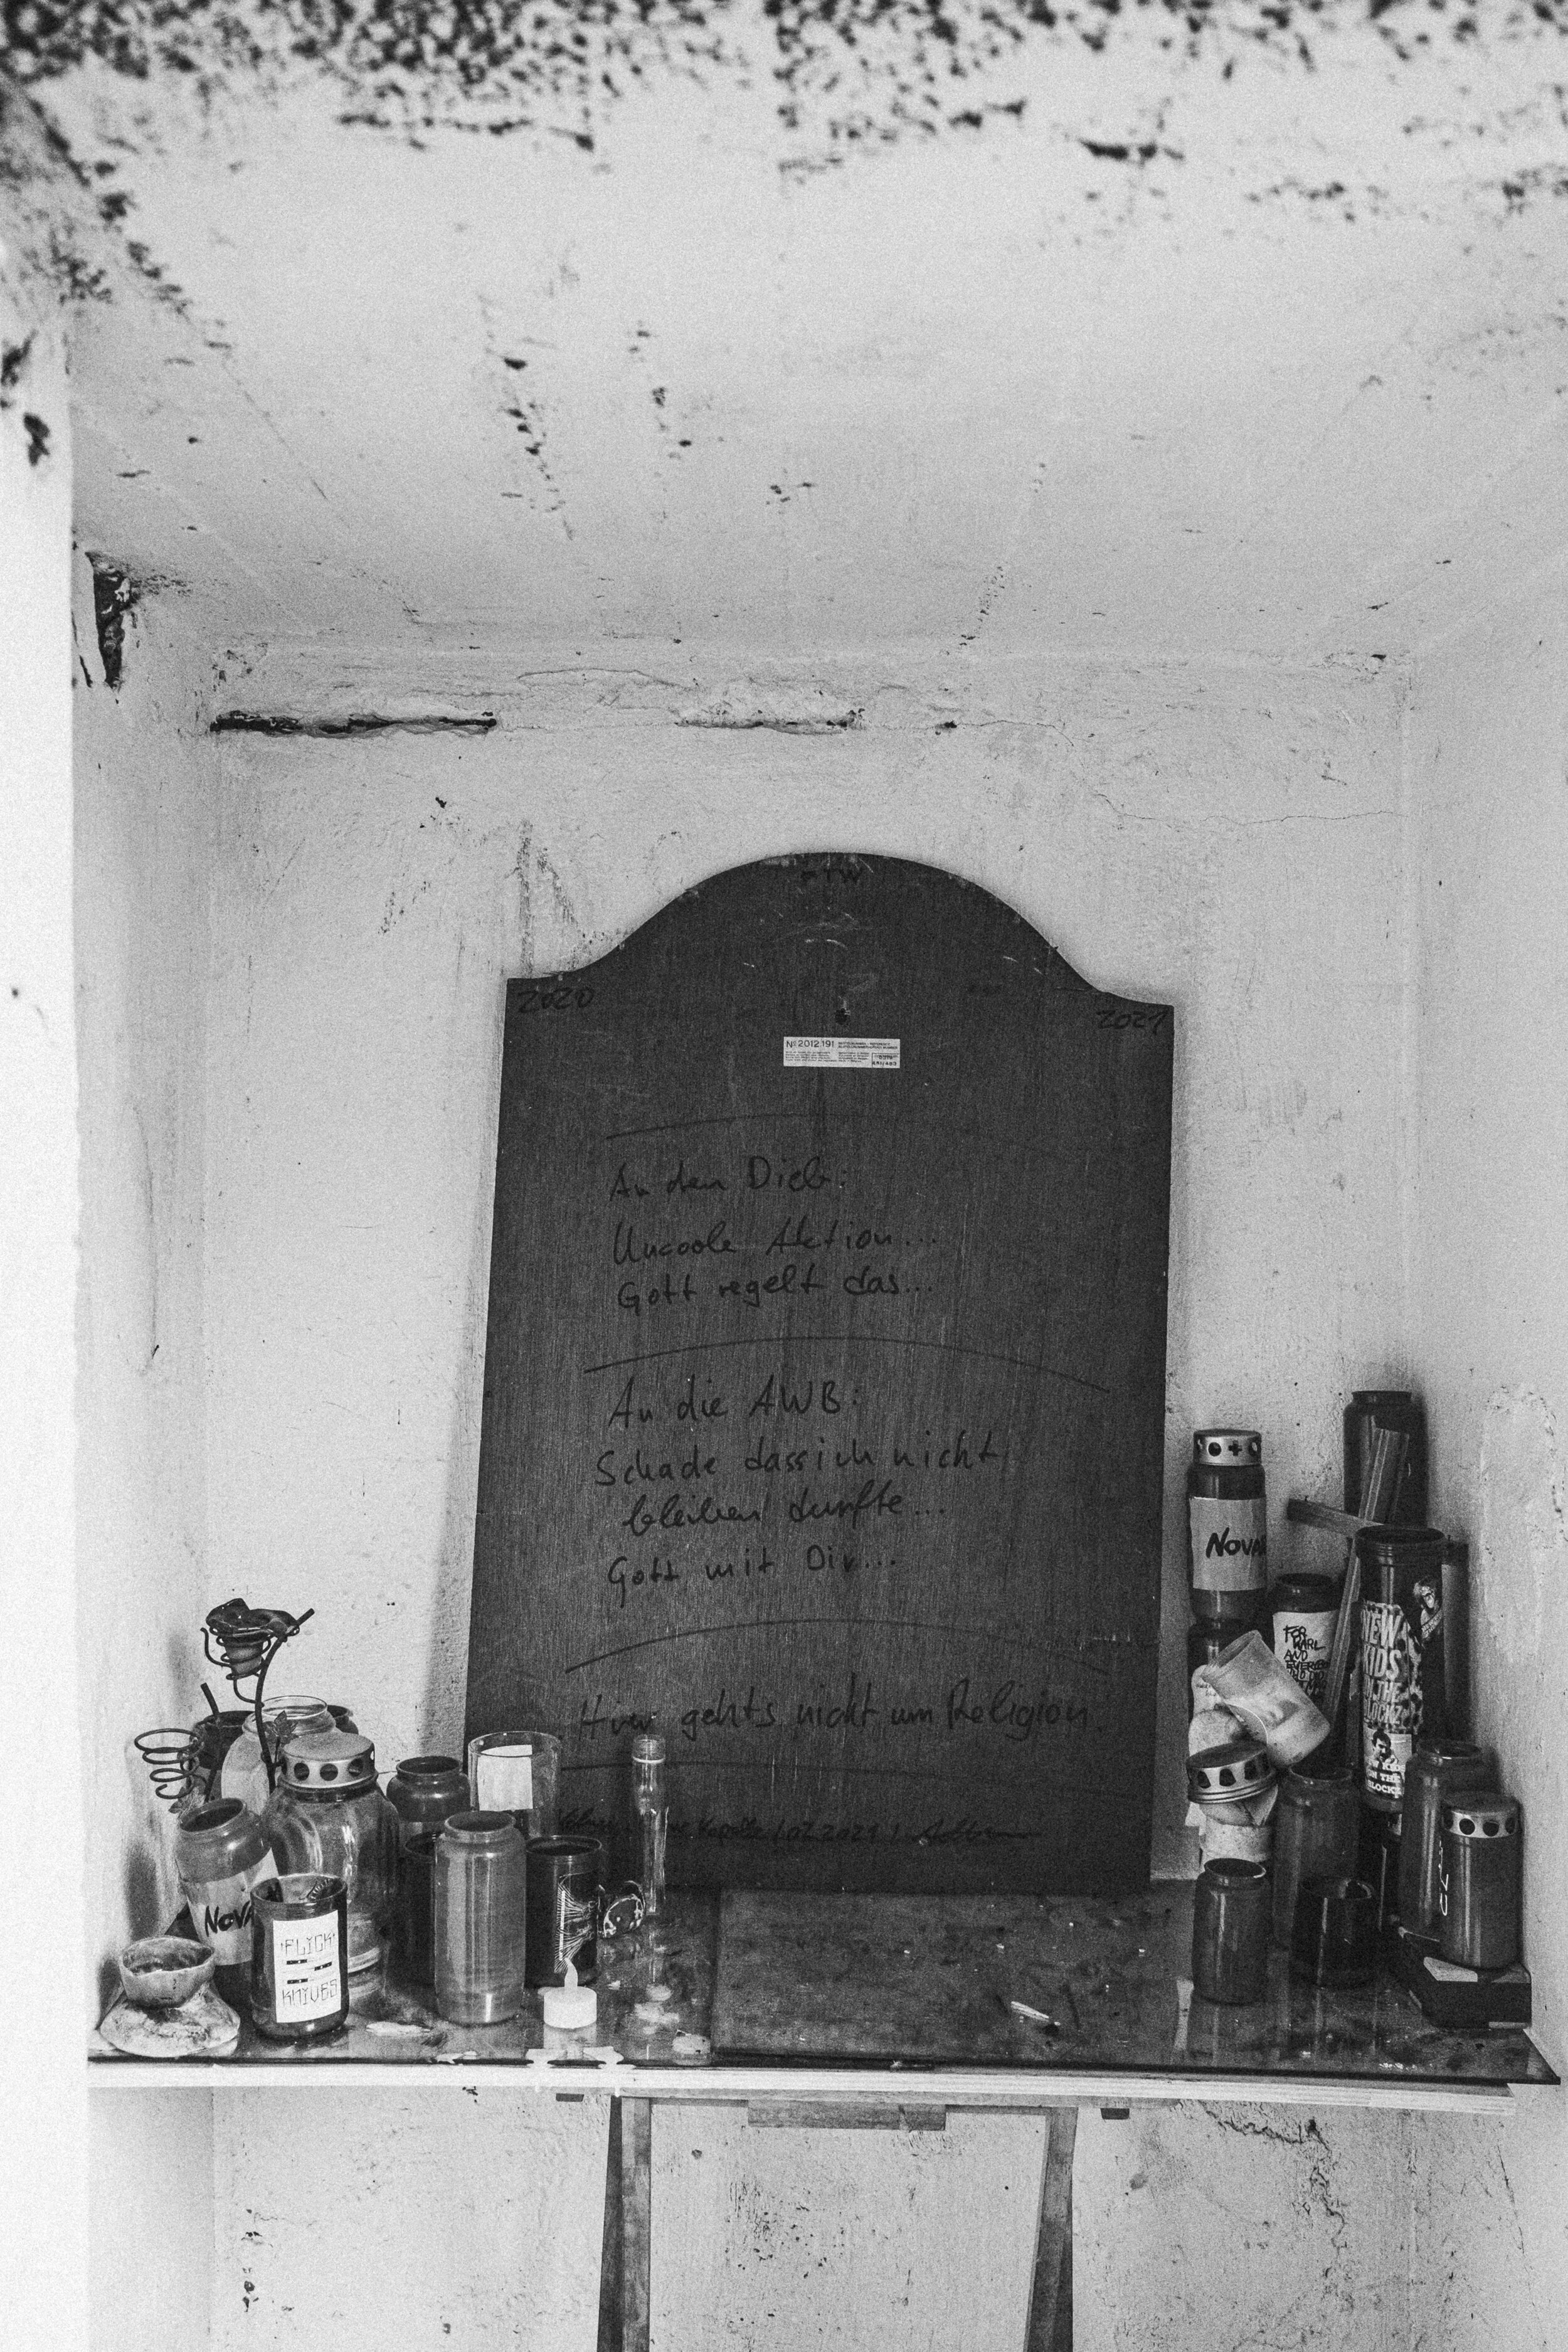 FTW
2020
2021
Nº 2012.191
An den Dieb:
Uncoole Aktion...
Gott regelt das...
An die AWB:
Schade dass ich nicht
bleiben durfte...
Gott mit Dir...
Hier gehts nicht um Religion!
07.2021
NOVA
FOR
AND
NEW
KIDS
THE
BLOCKZ
KIDS
ON THE
BLOCK
NOVA
FLICK
KNIVES